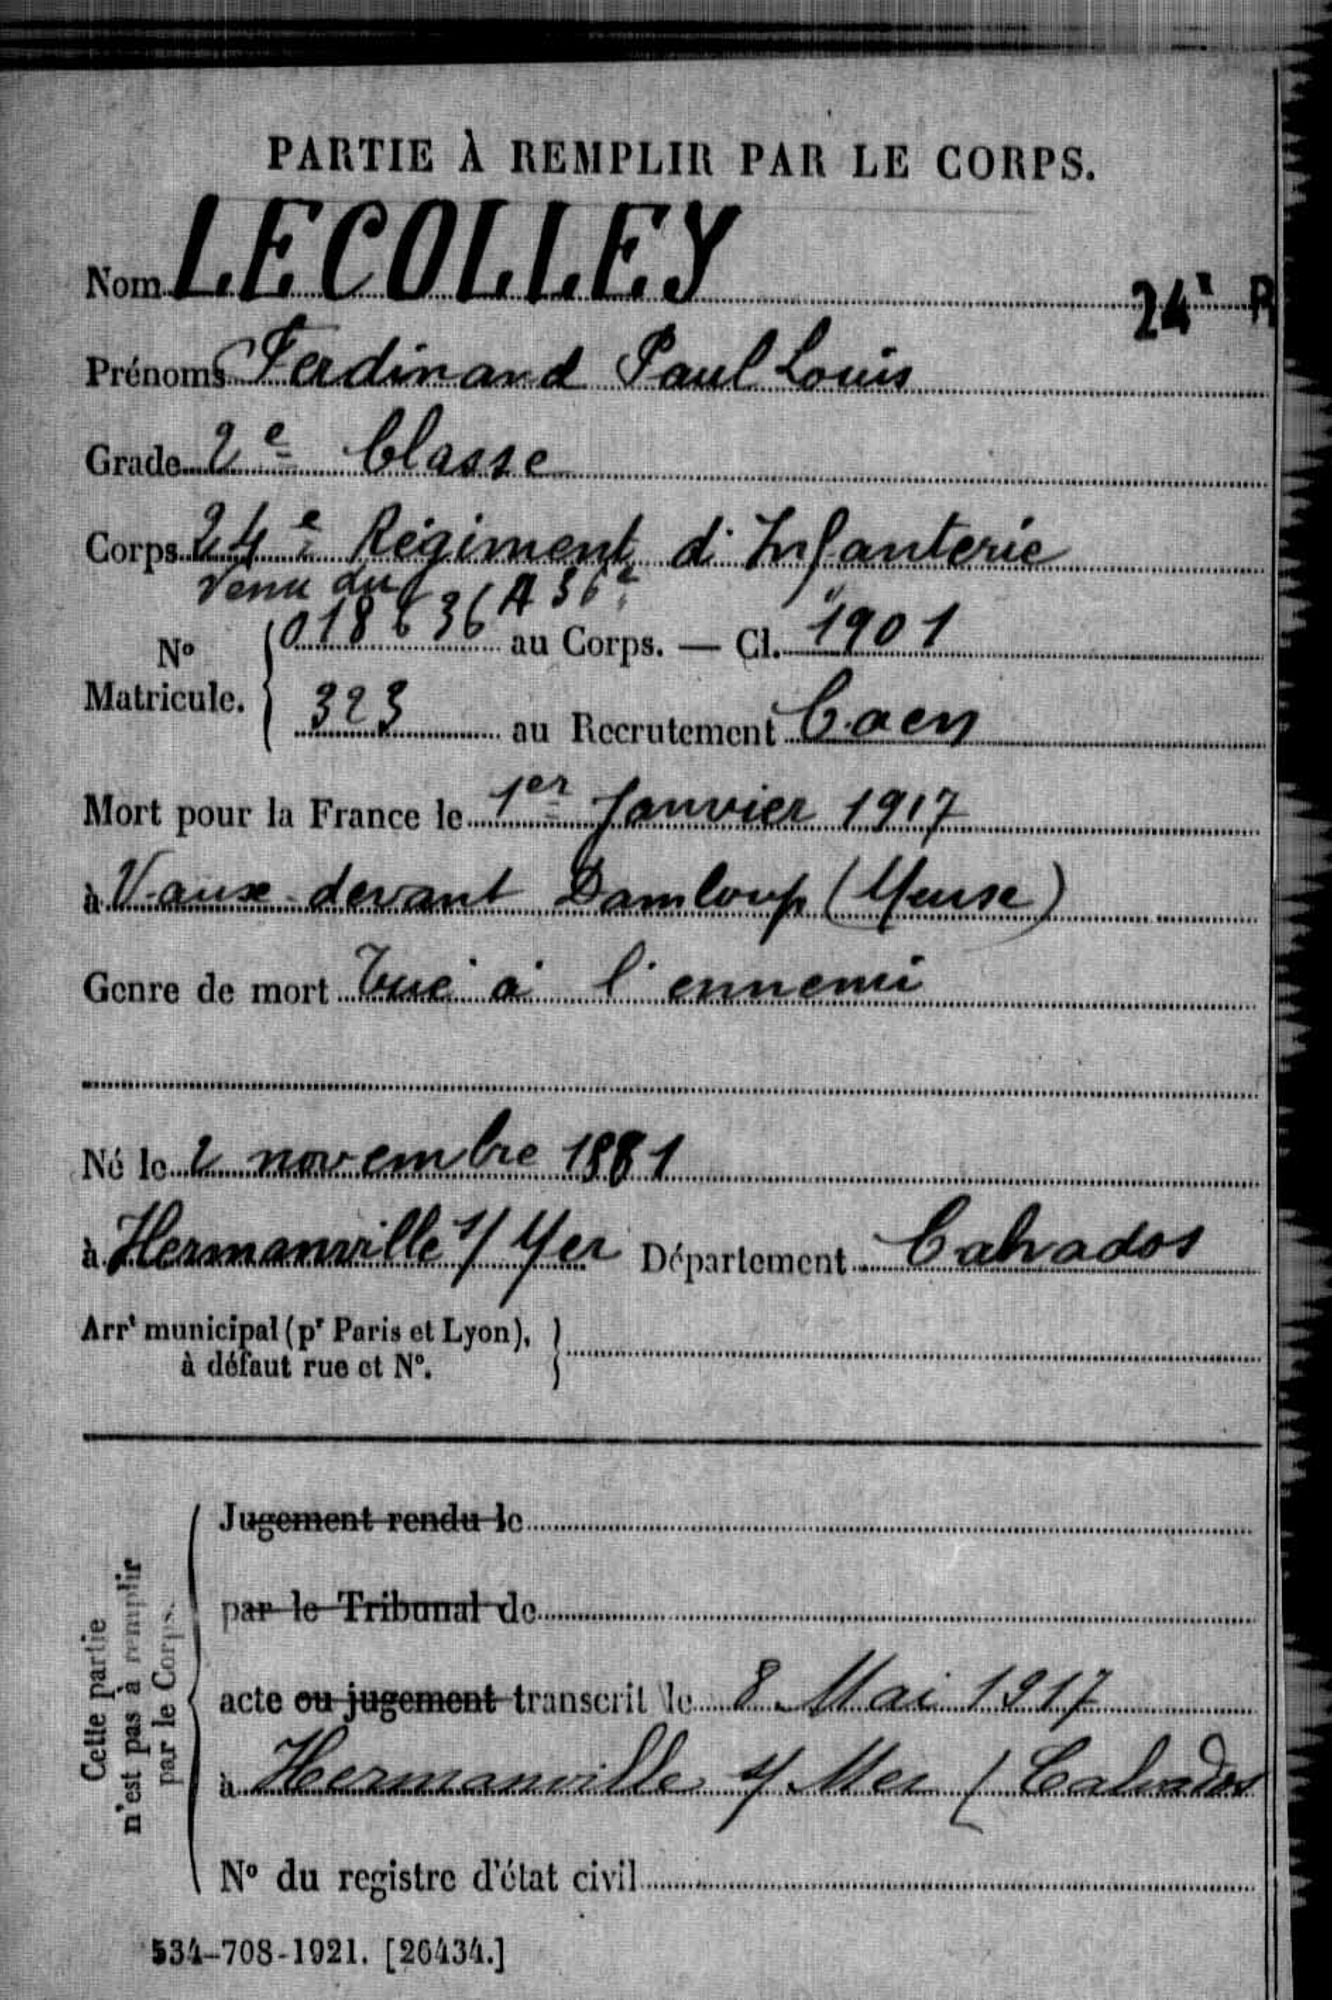 PARTIE À REMPLIR PAR LE CORPS.
Nom LECOLLEY
24e R
Prénoms Ferdinand Paul Louis
Grade 2e Classe
Corps 24e Régiment d'Infanterie
Venu du 36e
No Matricule. { 018636 A au Corps. — Cl. 1901
323 au Recrutement Caen
Mort pour la France le 1er Janvier 1917
à Vaux devant Damloup (Meuse)
Genre de mort Tué à l'ennemi
Né le 2 novembre 1881
à Hermanville s/ Mer Département Calvados
Arrt municipal (pr Paris et Lyon),
à défaut rue et No.
Cette partie
n'est pas à remplir
par le Corps.
Jugement rendu le
par le Tribunal de
acte ou jugement transcrit le 8 Mai 1917
à Hermanville s/ Mer (Calvados
No du registre d'état civil
534-708-1921. [26434.]